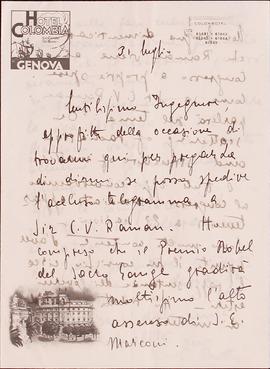 HOTEL
COLOMBIA
GENOVA
31 luglio
Gentilissimo Ingegnere
approfitto della occasione di
trovarmi qui per pregarla
di dirmi se posso spedire
l'accluso telegramma a
Sir C. V. Raman. Ho
compreso che il Premio Nobel
del Sacro Gange gradirà
moltissimo l'alto
assenso di S. E.
Marconi.